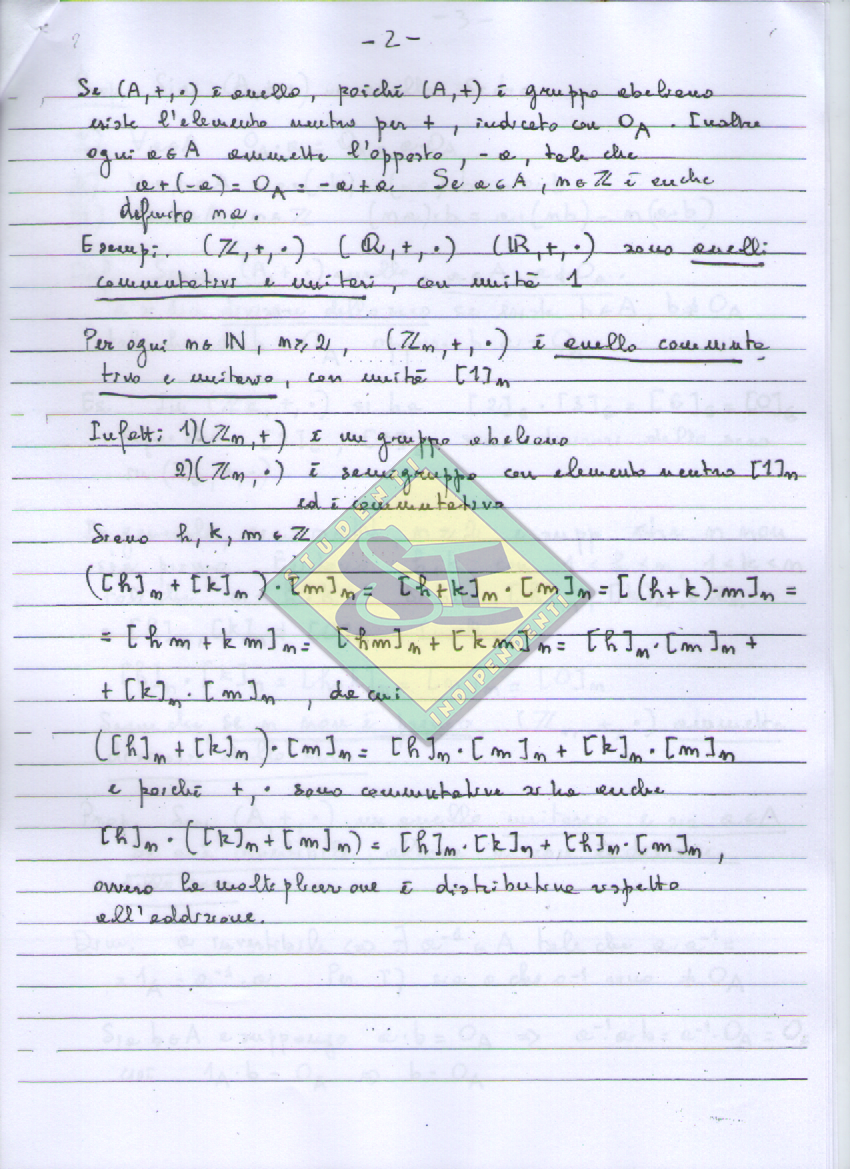 - 2 -
Se (A, +, ·) è anello, poichè (A, +) è gruppo abeliano
esiste l'elemento neutro per +, indicato con 0_A. Inoltre
ogni a ∈ A ammette l'opposto, -a, tale che
a + (-a) = 0_A = -a + a. Se a ∈ A, n ∈ ℤ è anche
definito na.
Esempi. (ℤ, +, ·) (ℚ, +, ·) (ℝ, +, ·) sono anelli
commutativi e unitari, con unità 1
Per ogni n ∈ ℕ, n ≥ 2, (ℤ_n, +, ·) è anello commuta
tivo e unitario, con unità [1]_n
Infatti 1) (ℤ_n, +) è un gruppo abeliano
2) (ℤ_n, ·) è semigruppo con elemento neutro [1]_n
ed è commutativo
Siano h, k, m ∈ ℤ
([h]_n + [k]_n) · [m]_n = [h+k]_n · [m]_n = [(h+k)·m]_n =
= [hm + km]_n = [hm]_n + [km]_n = [h]_n · [m]_n +
+ [k]_n · [m]_n, da cui
([h]_n + [k]_n) · [m]_n = [h]_n · [m]_n + [k]_n · [m]_n
e poichè +, · sono commutative si ha anche
[h]_n · ([k]_n + [m]_n) = [h]_n · [k]_n + [h]_n · [m]_n,
ovvero la moltiplicazione è distributiva rispetto
all'addizione.
STUDENTI
SI
INDIPENDENTI